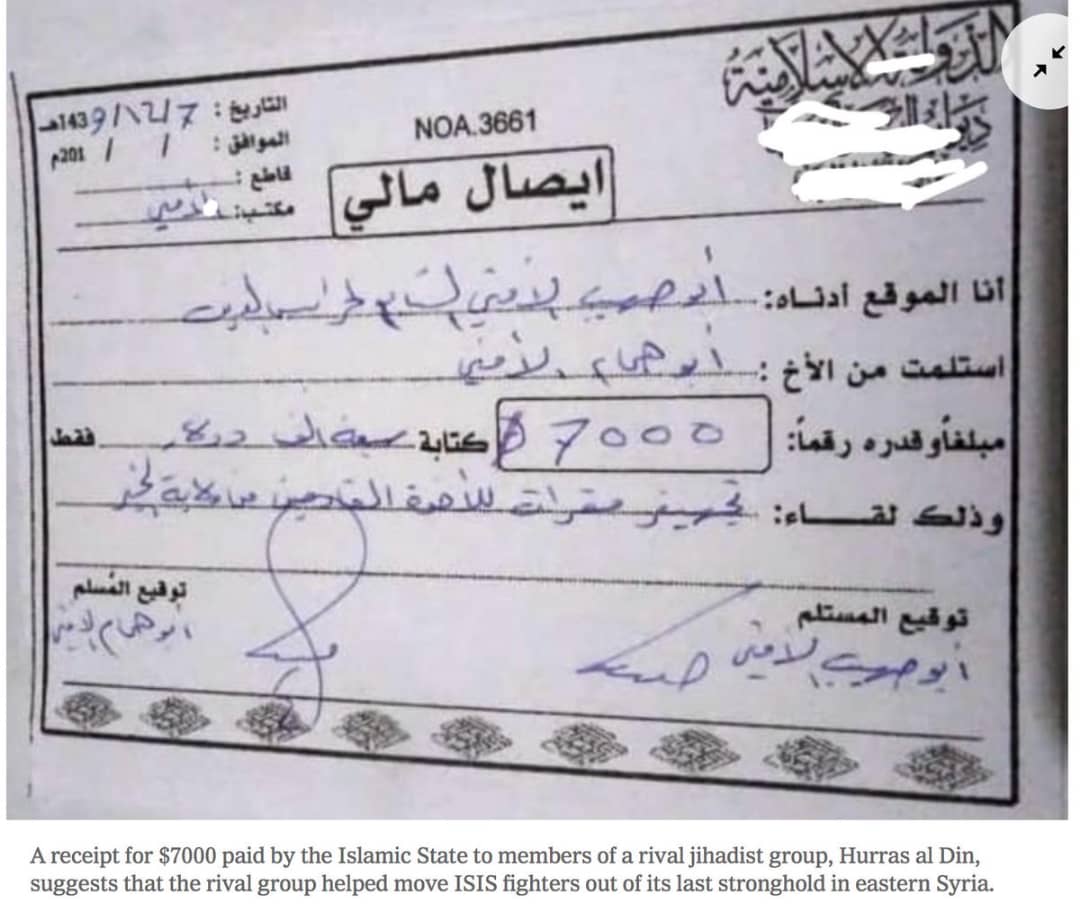 الدولة الإسلامية
التاريخ : 7/12/1439هـ
NOA.3661
الموافق : / / 201م
قاطع :
ايصال مالي
مكتب:
أنا الموقع أدناه: أبو صهيب الأمني التابع لحراس الدين
استلمت من الأخ : أبو همام الأمني
مبلغاً وقدره رقماً: 7000 $ كتابة سبعة الف دولار فقط
وذلك لقـــــاء: تجهيز مقرات للأخوة القادمين من ولاية الخير
توقيع المستلم توقيع المُسلم
أبو صهيب الأمني ابو همام الامني
A receipt for $7000 paid by the Islamic State to members of a rival jihadist group, Hurras al Din,
suggests that the rival group helped move ISIS fighters out of its last stronghold in eastern Syria.